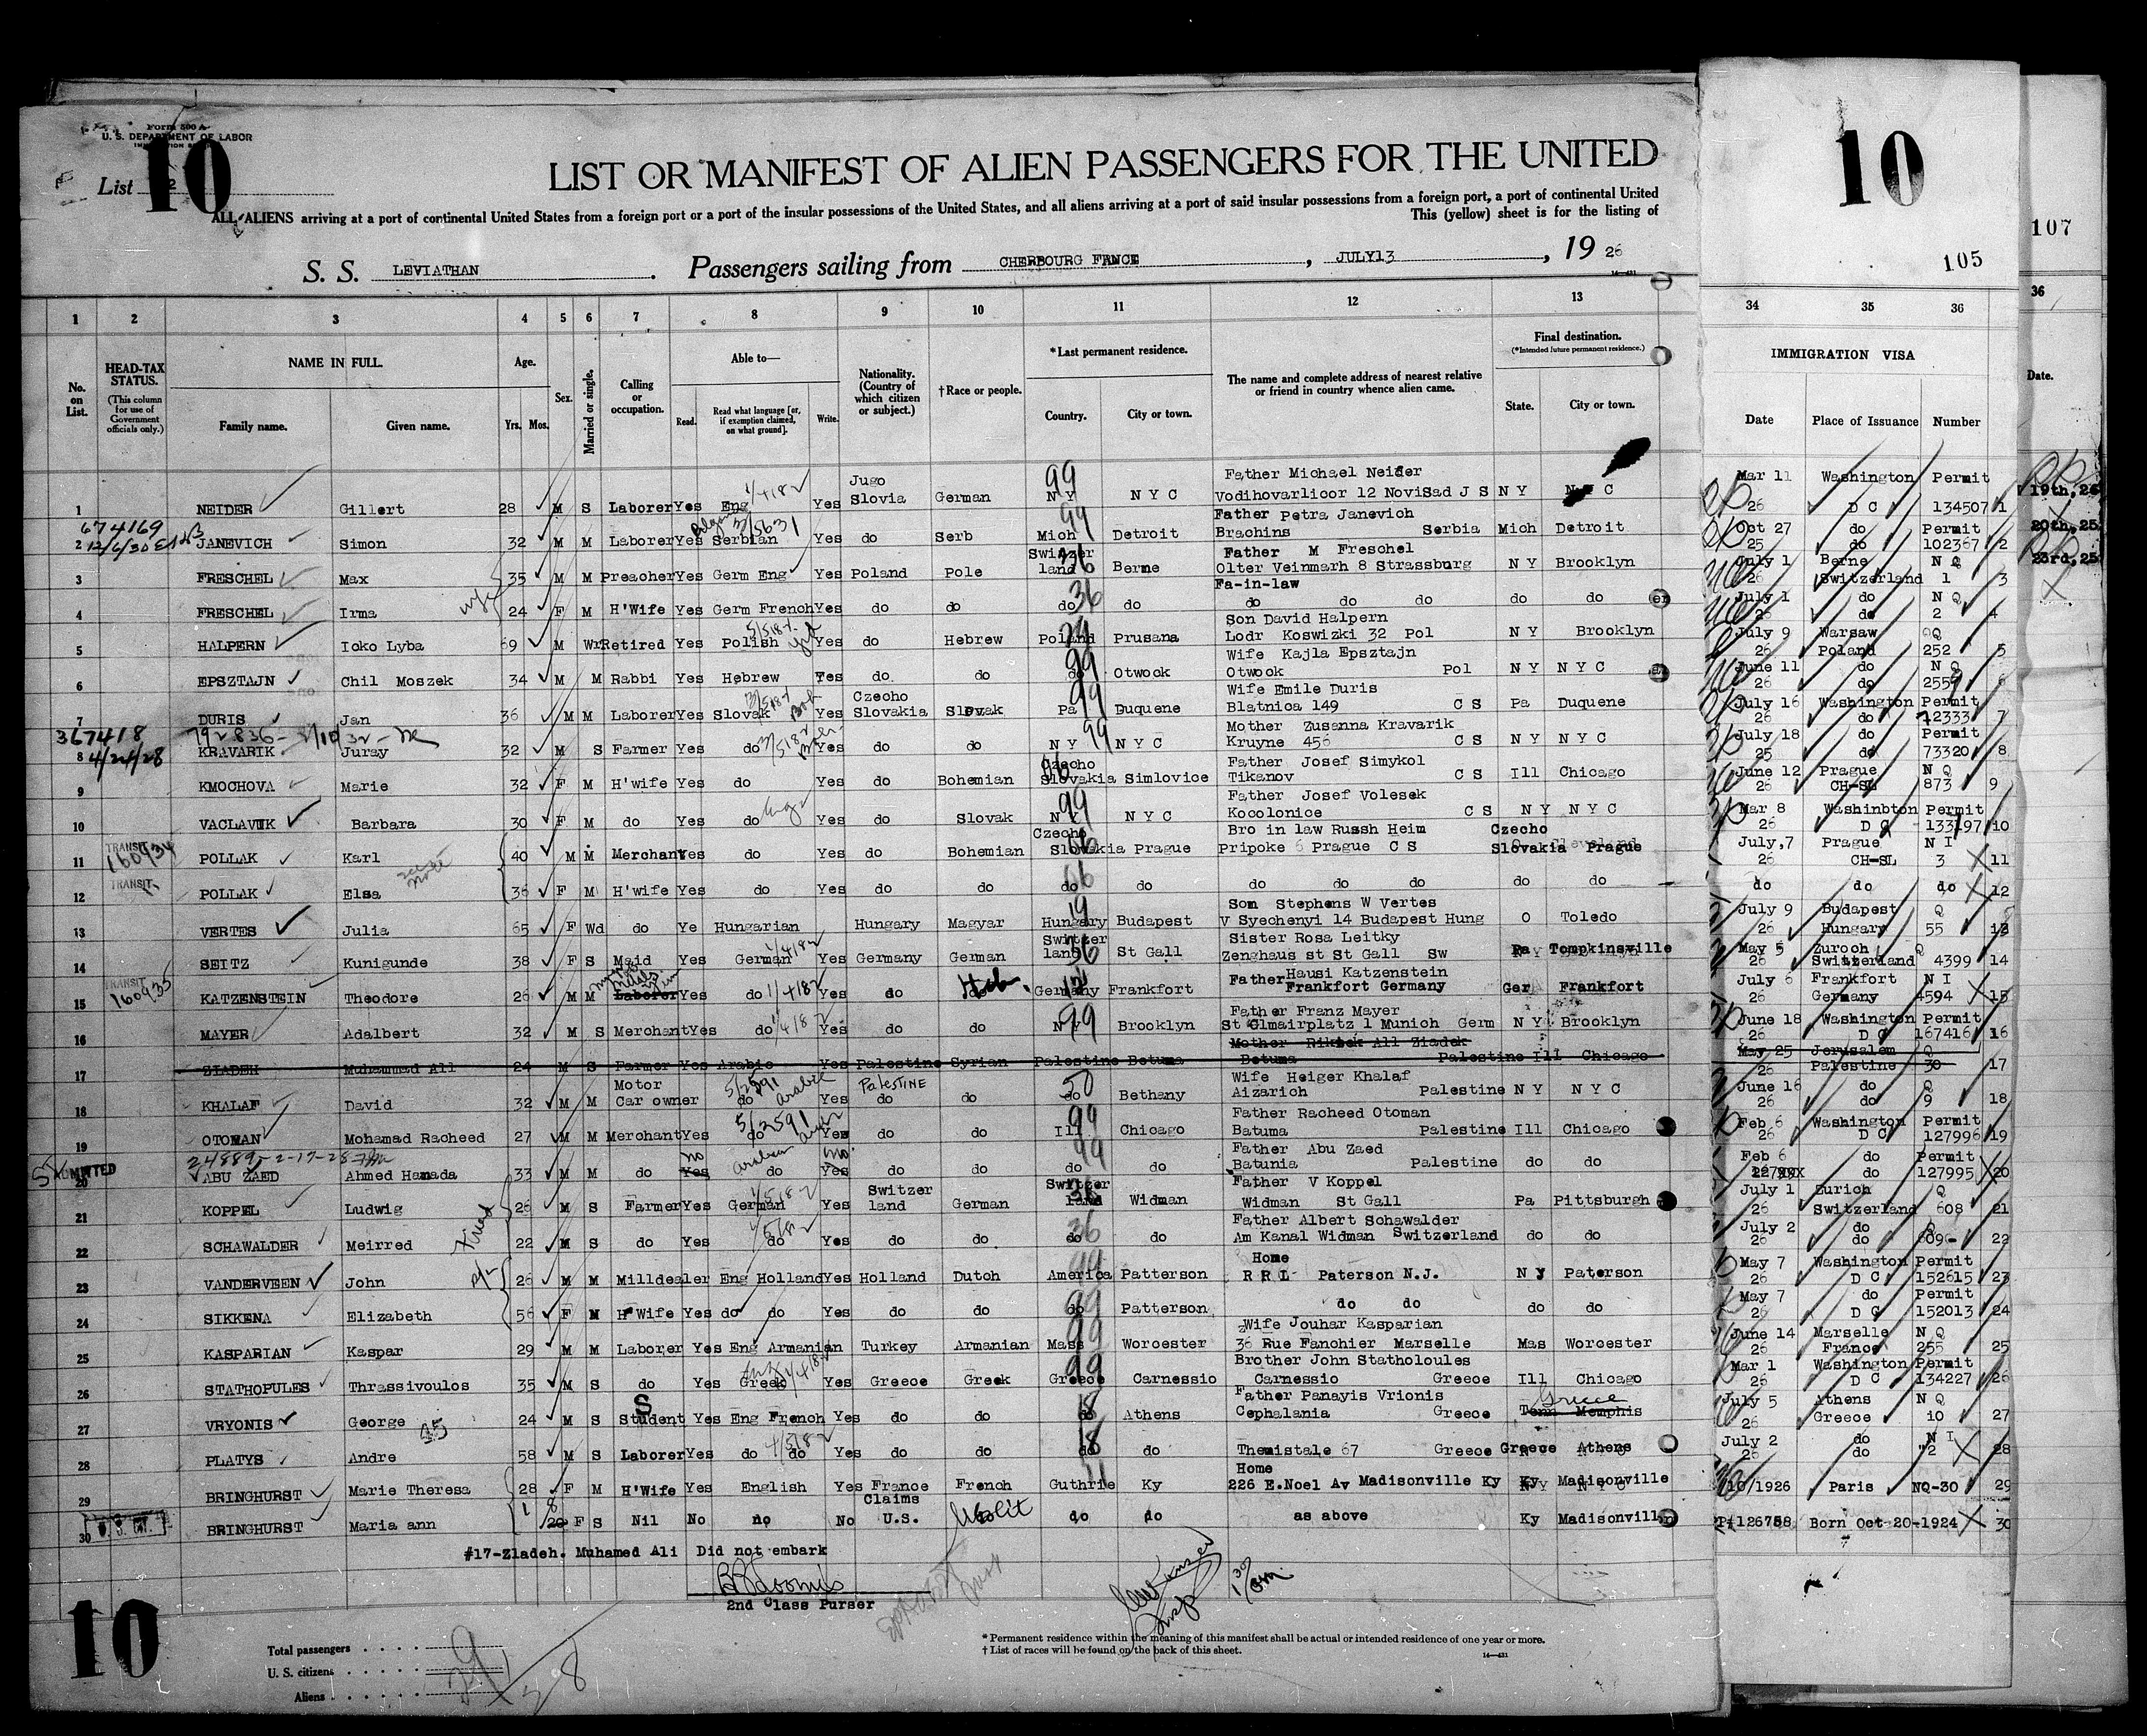 Form 500 A
U. S. DEPARTMENT OF LABOR
10
List 2
LIST OR MANIFEST OF ALIEN PASSENGERS FOR THE UNITED
ALL ALIENS arriving at a port of continental United States from a foreign port or a port of the insular possessions of the United States, and all aliens arriving at a port of said insular possessions from a foreign port, a port of continental United
This (yellow) sheet is for the listing of
S. S. LEVIATHAN . Passengers sailing from CHERBOURG FANCE , JULY13 , 19 26
14—421
10
105
107
1 2 3 4 5 6 7 8 9 10 11 12 13 34 35 36
36
No. on List.
HEAD-TAX STATUS.
(This column for use of Government officials only.)
NAME IN FULL.
Family name. Given name.
Age.
Yrs. Mos.
Sex.
Married or single.
Calling or occupation.
Able to—
Read. Read what language [or, if exemption claimed, on what ground]. Write.
Nationality. (Country of which citizen or subject.)
†Race or people.
*Last permanent residence.
Country. City or town.
The name and complete address of nearest relative or friend in country whence alien came.
Final destination.
(*Intended future permanent residence.)
State. City or town.
IMMIGRATION VISA
Date Place of Issuance Number
Date.
Jugo 99 Father Michael Neider Mar 11 Washington Permit
1 NEIDER Gillert 28 M S Laborer Yes Eng Yes Slovia German N Y N Y C Vodihovarlicor 12 NoviSad J S N Y N Y C 26 D C 134507 1
19th, 26
674169 99 Father Petra Janevich Oct 27 do Permit
2 12/6/30 JANEVICH Simon 32 M M Laborer Yes Serbian Yes do Serb Mich Detroit Brachins Serbia Mich Detroit 25 do 102367 2
20th, 25
Switzer Father M Freschel July 1 Berne N Q
3 FRESCHEL Max 35 M M Preacher Yes Germ Eng Yes Poland Pole land Berne Olter Veinmarh 8 Strassburg N Y Brooklyn 26 Switzerland 1 3
23rd, 25
wife 36 Fa-in-law July 1 do N Q
4 FRESCHEL Irma 24 F M H'Wife Yes Germ French Yes do do do do do do do do do 26 do 2 4
Son David Halpern July 9 Warsaw QQ
5 HALPERN Icko Lyba 69 M Wr Retired Yes Polish Yes do Hebrew Poland Prusana Lodr Koswizki 32 Pol N Y Brooklyn 26 Poland 252 5
99 Wife Kajla Epsztajn June 11 do N Q
6 EPSZTAJN Chil Moszek 34 M M Rabbi Yes Hebrew Yes do do do Otwock Otwock Pol N Y N Y C 26 do 2559 6
Czecho 99 Wife Emile Duris July 16 Washington Permit
7 DURIS Jan 36 M M Laborer Yes Slovak Yes Slovakia Slovak Pa Duquene Blatnica 149 C S Pa Duquene 26 do 72333 7
367418 792836 99 Mother Zusanna Kravarik July 18 do Permit
8 4/24/28 KRAVARIK Juray 32 M S Farmer Yes do Yes do do N Y N Y C Kruyne 456 C S N Y N Y C 25 do 73320 8
Czecho Father Josef Simykol June 12 Prague N Q
9 KMOCHOVA Marie 32 F M H'wife Yes do Yes do Bohemian Slovakia Simlovice Tikanov C S Ill Chicago 26 CH-SL 873 9
99 Father Josef Volesek Mar 8 Washinbton Permit
10 VACLAVIK Barbara 30 F M do Yes do Yes do Slovak N Y N Y C Kocolonice C S N Y N Y C 26 D C 133197 10
TRANSIT Czecho Bro in law Russh Heim Czecho July,7 Prague N I
11 160934 POLLAK Karl 40 M M Merchant Yes do Yes do Bohemian Slovakia Prague Pripoke 6 Prague C S Slovakia Prague 26 CH-SL 3 11
TRANSIT
12 POLLAK Elsa 36 F M H'wife Yes do Yes do do do do do do do do do do do do 12
Som Stephens W Vertes July 9 Budapest Q
13 VERTES Julia 65 F Wd do Ye Hungarian Hungary Magyar Hungary Budapest V Syechenyi 14 Budapest Hung O Toledo 26 Hungary 55 13
Switzer Sister Rosa Leitky May 5 Zuroch Q
14 SEITZ Kunigunde 38 F S Maid Yes German Yes Germany German land St Gall Zenghaus st St Gall Sw Pa Tompkinsville 26 Switzerland 4399 14
TRANSIT Father Hausi Katzenstein July 6 Frankfort N I
15 160935 KATZENSTEIN Theodore 26 M M Laborer Yes do Yes do Heb. Germany Frankfort Frankfort Germany Ger Frankfort 26 Germany 4594 15
99 Father Franz Mayer June 18 Washington Permit
16 MAYER Adalbert 32 M S Merchant Yes do Yes do do N Y Brooklyn St Clmairplatz 1 Munich Germ N Y Brooklyn 26 D C 167416 16
Mother Rikbek All Ziadek May 25 Jerusalem Q
17 ZIADEH Muhammad All 24 M S Farmer Yes Arabic Yes Palestine Syrian Palestine Betuma Betuma Palestine Ill Chicago 26 Palestine 30 17
Motor PALESTINE 50 Wife Heiger Khalaf June 16 do Q
18 KHALAF David 32 M M Car owner do Yes do do do Bethany Aizarich Palestine N Y N Y C 26 do 9 18
5/2591 99 Father Racheed Otoman Feb 6 Washington Permit
19 OTOMAN Mohamad Racheed 27 M M Merchant Yes do Yes do do Ill Chicago Batuma Palestine Ill Chicago 26 D C 127996 19
ADMITTED 24889-2-17-28 no Arabian no 99 Father Abu Zaed Feb 6 do Permit
20 ABU ZAED Ahmed Hamada 33 M M do Yes do Yes do do do do Batunia Palestine do do do 127995 20
Switzer Switzer Father V Koppel July 1 Zurich Q
21 KOPPEL Ludwig 26 M S Farmer Yes German Yes land German land Widman Widman St Gall Pa Pittsburgh 26 Switzerland 608 21
Friend 36 Father Albert Schawalder July 2 do Q
22 SCHAWALDER Meirred 22 M S do Yes do Yes do do do do Am Kanal Widman Switzerland do do 26 do 609- 22
99 Home May 7 Washington Permit
23 VANDERVEEN John 26 M M Milldealer Eng Holland Yes Holland Dutch America Patterson R R L Paterson N.J. N J Paterson 26 D C 152615 23
99 May 7 do Permit
24 SIKKENA Elizabeth 56 F M H'Wife Yes do do Yes do do do Patterson do do do do 26 D C 152013 24
99 Wife Jouhar Kasparian June 14 Marselle N Q
25 KASPARIAN Kaspar 29 M M Laborer Yes Eng Armanian Turkey Armanian Mass Worcester 36 Rue Fanchier Marselle Mas Worcester 26 France 255 25
99 Brother John Statholoules Mar 1 Washington Permit
26 STATHOPULES Thrassivoulos 35 M S do Yes Greek Yes Greece Greek Greece Carnessio Carnessio Greece Ill Chicago 26 D C 134227 26
S 18 Father Panayis Vrionis Greece July 5 Athens N Q
27 VRYONIS George 24 M S Student Yes Eng French Yes do do do Athens Cephalania Greece Tenn Memphis 26 Greece 10 27
18 July 2 do N I
28 PLATYS Andre 58 M S Laborer Yes do do Yes do do do do Themistale 67 Greece Greece Athens do 2 28
Home
29 BRINGHURST Marie Theresa 28 F M H'Wife Yes English Yes France French Guthrie Ky 226 E.Noel Av Madisonville Ky Ky Madisonville 10/1926 Paris NQ-30 29
Claims
30 BRINGHURST Maria ann 1 8 F S Nil No no No U.S. do do as above Ky Madisonville P#126758 Born Oct-20-1924 30
#17-Zladeh. Muhamed Ali Did not embark
2nd Class Purser
10
Total passengers
U. S. citizens
Aliens
29
* Permanent residence within the meaning of this manifest shall be actual or intended residence of one year or more.
† List of races will be found on the back of this sheet.
14—421